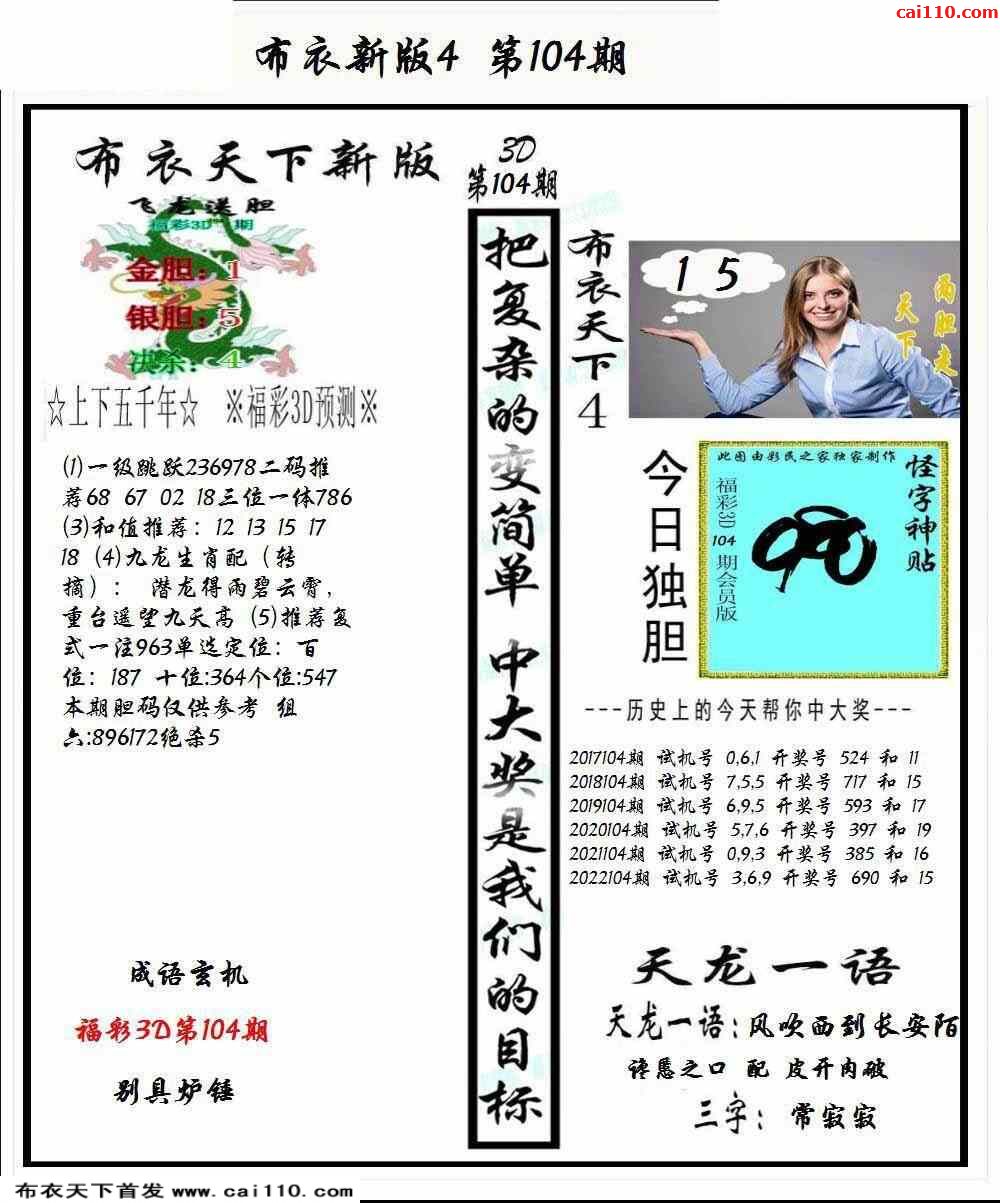 cai110.com
布衣新版4 第104期
布衣天下新版
飞龙送胆
福彩3D 期
金胆：1
银胆：5
决杀：4
☆上下五千年☆ ※福彩3D预测※
(1)一级跳跃236978二码推
荐68 67 02 18三位一体786
(3)和值推荐：12 13 15 17
18 (4)九龙生肖配（转
摘）： 潜龙得雨碧云霄,
重台遥望九天高 (5)推荐复
式一注963单选定位：百
位：187 十位:364个位:547
本期胆码仅供参考 组
六:896172绝杀5
成语玄机
福彩3D第104期
别具炉锤
3D
第104期
把复杂的变简单 中大奖是我们的目标
布衣天下4
1 5
两胆走
天下
今日独胆
此图由彩民之家独家制作
怪字神贴
福彩3D 104 期会员版
---历史上的今天帮你中大奖---
2017104期 试机号 0,6,1 开奖号 524 和 11
2018104期 试机号 7,5,5 开奖号 717 和 15
2019104期 试机号 6,9,5 开奖号 593 和 17
2020104期 试机号 5,7,6 开奖号 397 和 19
2021104期 试机号 0,9,3 开奖号 385 和 16
2022104期 试机号 3,6,9 开奖号 690 和 15
天龙一语
天龙一语：风吹西到长安陌
谗慝之口 配 皮开肉破
三字： 常寂寂
布衣天下首发 www.cai110.com